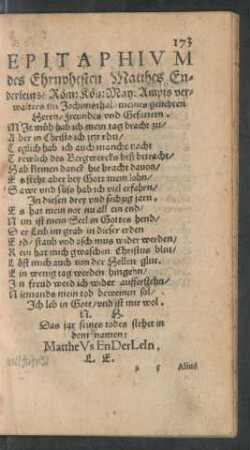 173
EPITAPHIVM
des Ehrnvhesten Matthes En-
derleins/ Röm: Kön: May: Ampts ver-
walters im Jochimsthal/ meines geliebten
Herrn/ freundes vnd Gefattern.
MIt müh hab ich mein tag bracht zu/
Aber in Christo ich jetzt rhu/
Teglich hab ich auch manche nacht
Trewlich des Bergwercks best betracht/
Hab kleinen danck hie bracht dauon/
Es stehe aber bey Gott mein lohn/
Sawr vnd süss hab ich viel erfahrn/
In diesen drey vnd sechzig jarn.
Es hat mein not nu all ein end/
Nun ist mein Seel in Gottes hend/
Der Leib im grab in dieser erden
Erd/ staub vnd asch mus wider werden/
Rein hat mich gwaschen Christus blut/
Löst mich auch von der Hellen glut.
Ein wenig tag werden hingehn/
In freud werd ich wider aufferstehn/
Niemands mein tod beweinen sol/
Ich leb in Gott/ vnd ist mir wol.
N. H.
Das jar seines todes stehet in
dem namen:
MattheVs EnDerLeIn,
L. E.
Aliud